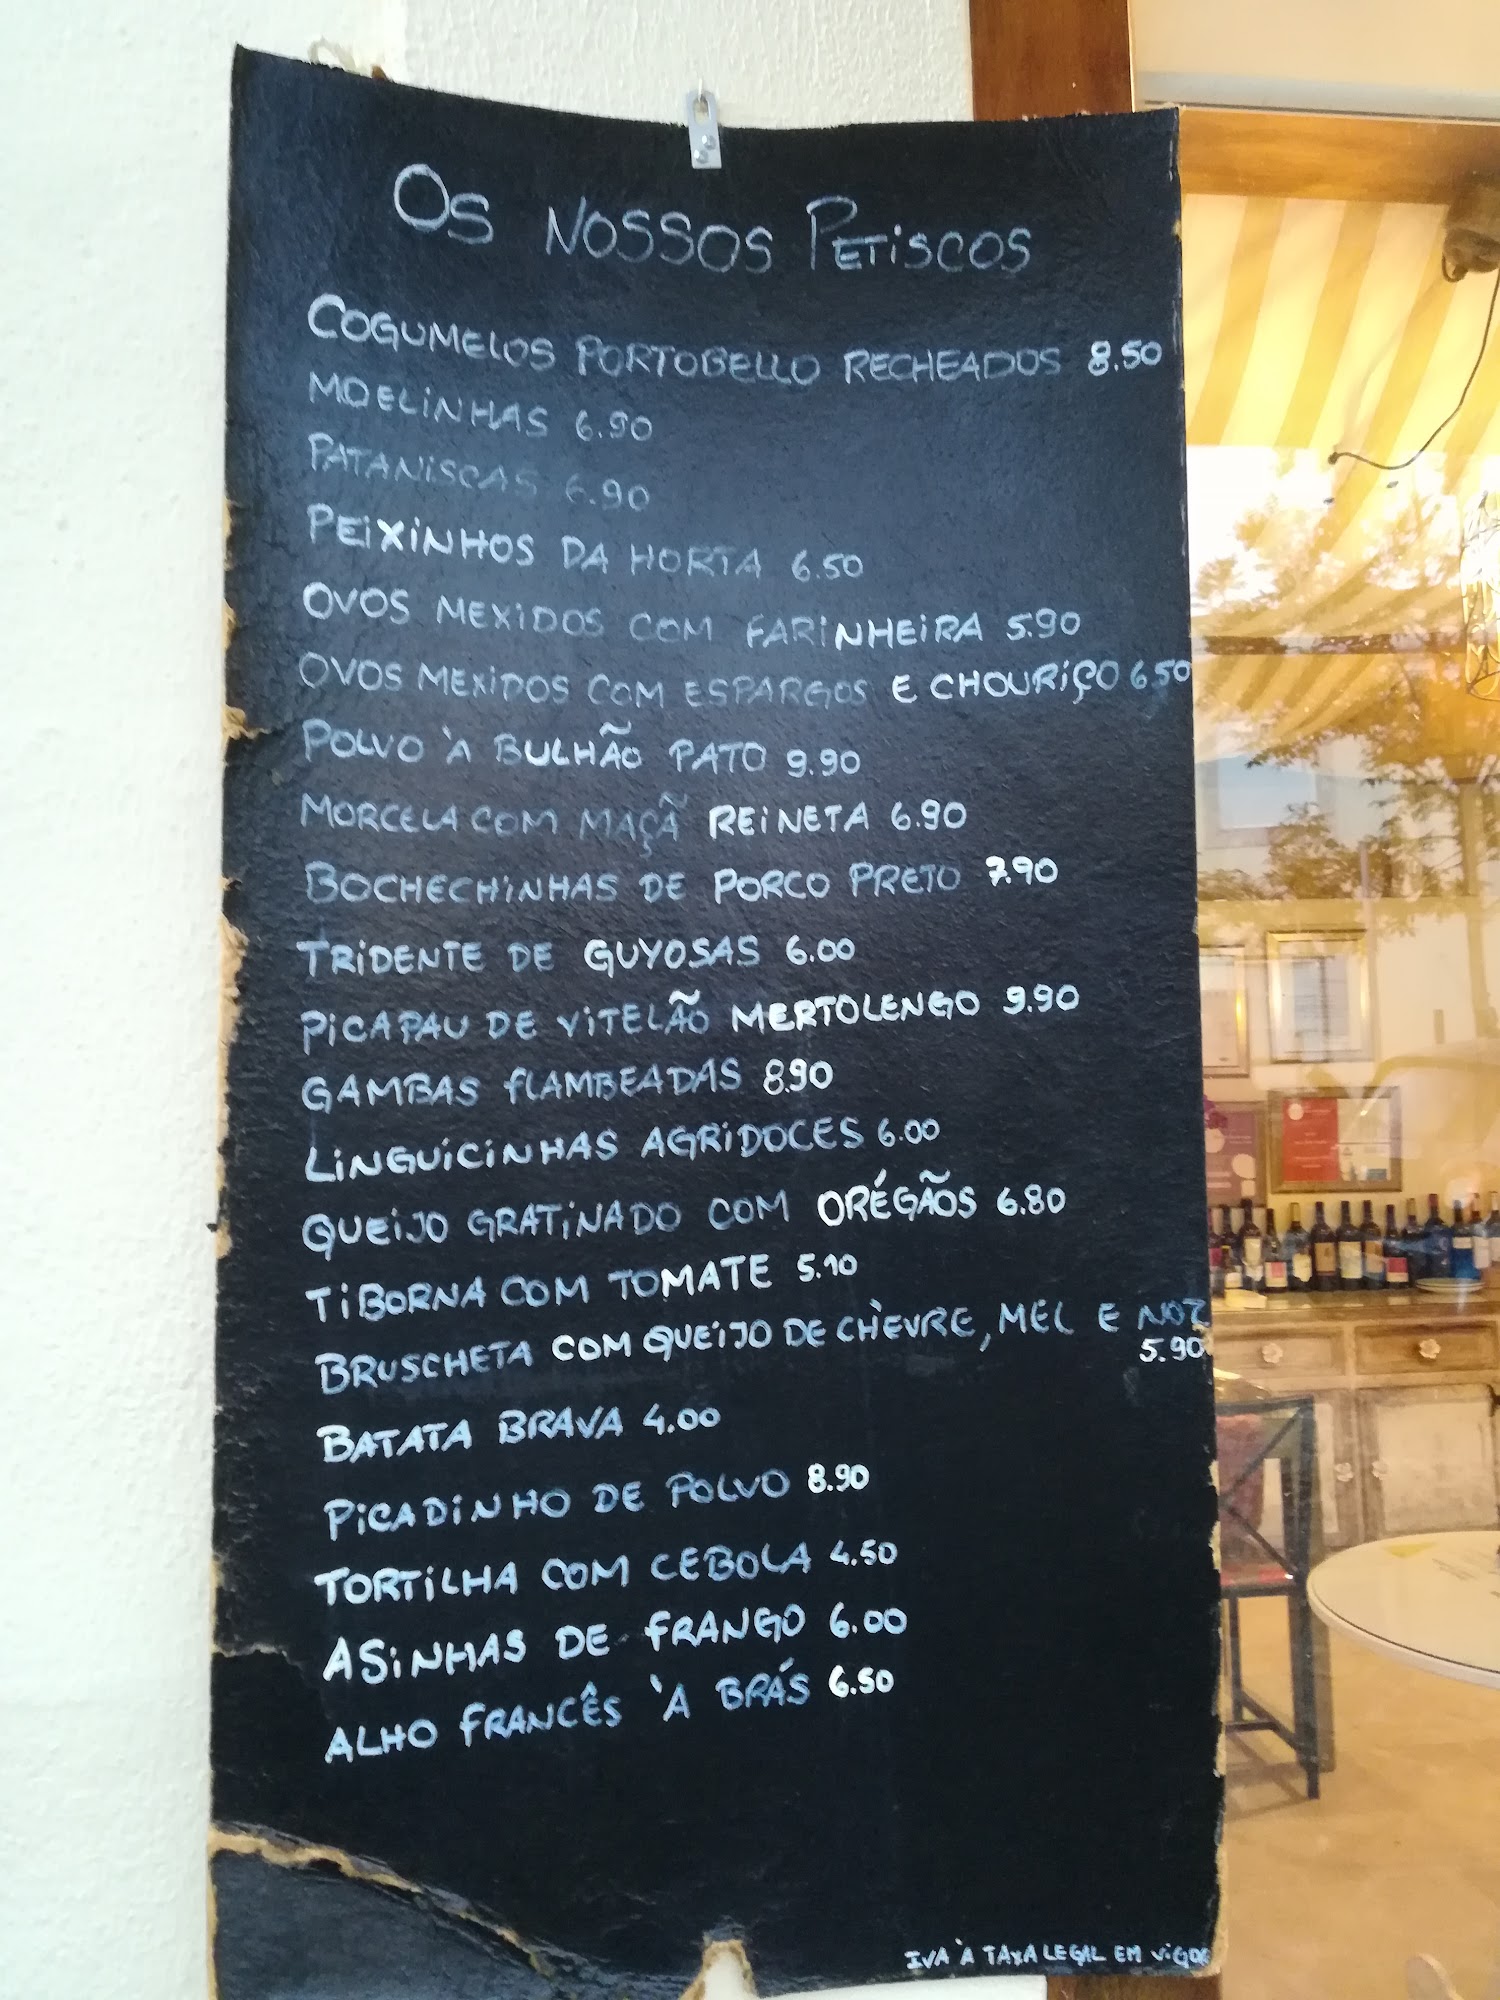 Os NOSSOS PETiSCOS
COGUMELOS PORTOBELLO RECHEADOS 8.50
MOELiNHAS 6.90
PATANiSCAS 6.90
PEiXiNHOS DA HORTA 6.50
OVOS MEXiDOS COM FARiNHEiRA 5.90
OVOS MEXiDOS COM ESPARGOS E CHOURiÇO 6.50
POLVO À BULHÃO PATO 9.90
MORCELA COM MAÇÃ REiNETA 6.90
BOCHECHiNHAS DE PORCO PRETO 7.90
TRiDENTE DE GUYOSAS 6.00
PiCAPAU DE ViTELÃO MERTOLENGO 9.90
GAMBAS fLAMBEADAS 8.90
LiNGUiCiNHAS AGRiDOCES 6.00
QUEiJO GRATiNADO COM ORÉGÃOS 6.80
TiBORNA COM TOMATE 5.10
BRUSCHETA COM QUEiJO DE CHÈVRE, MEL E NOZ
5.90
BATATA BRAVA 4.00
PiCADiNHO DE POLVO 8.90
TORTiLHA COM CEBOLA 4.50
ASiNHAS DE fRANGO 6.00
ALHO fRANCÊS À BRÁS 6.50
IVA À TAXA LEGAL EM ViGOR